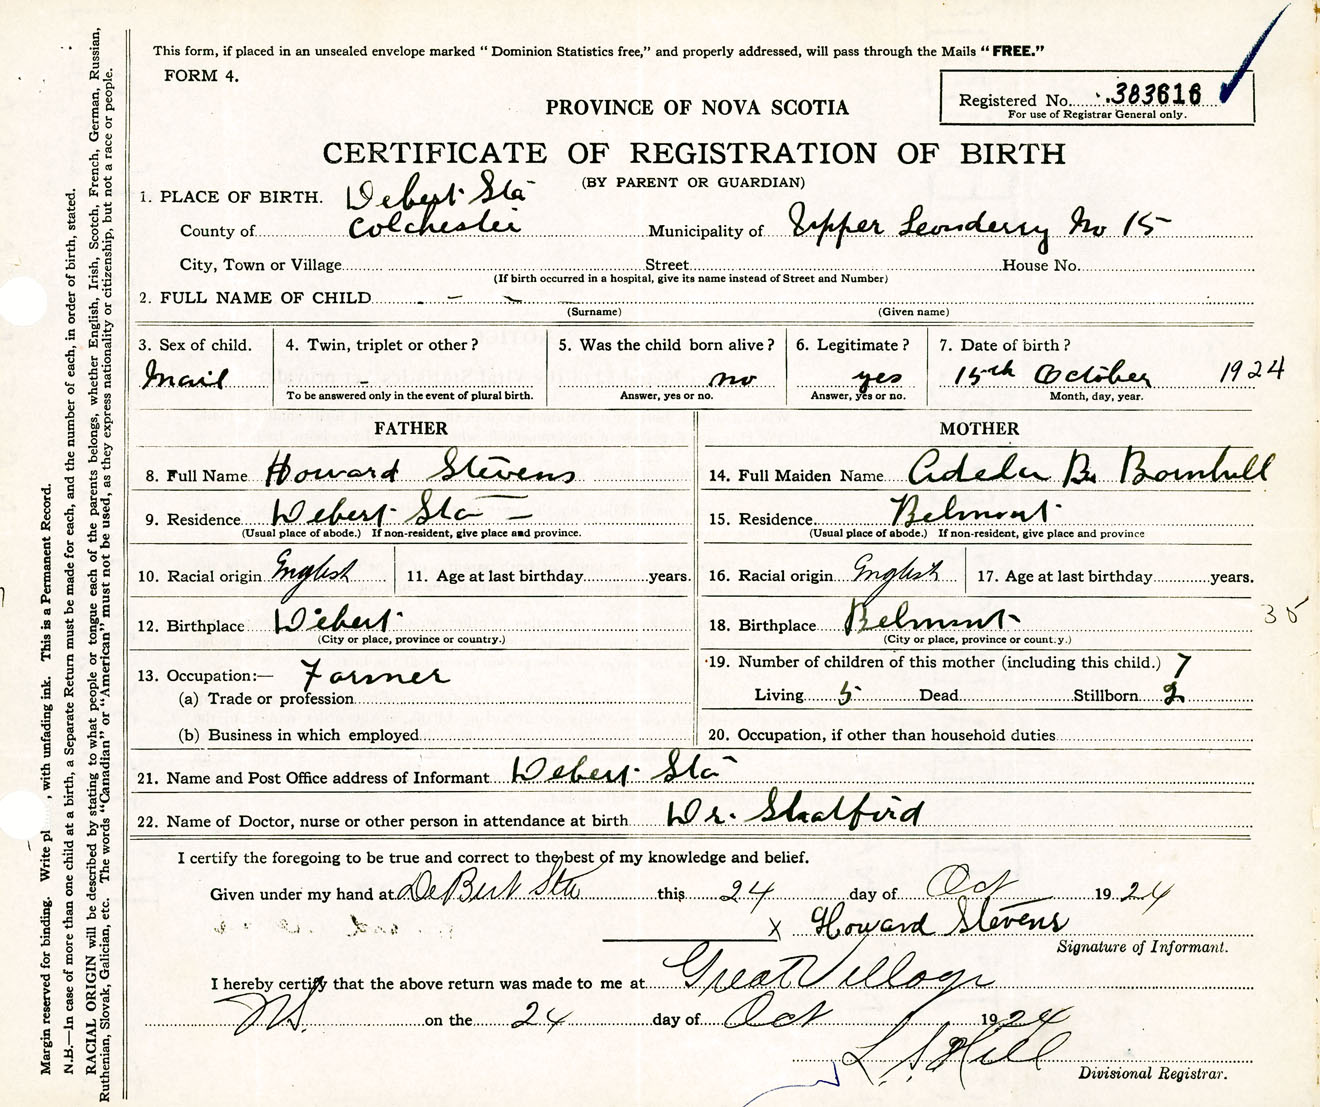 This form, if placed in an unsealed envelope marked "Dominion Statistics free," and properly addressed, will pass through the Mails "FREE."
FORM 4.
Registered No. 383616
For use of Registrar General only.
PROVINCE OF NOVA SCOTIA
CERTIFICATE OF REGISTRATION OF BIRTH
(BY PARENT OR GUARDIAN)
1. PLACE OF BIRTH. Debert Sta
County of Colchester Municipality of Upper Londerry No 15
City, Town or Village Street House No.
(If birth occurred in a hospital, give its name instead of Street and Number)
2. FULL NAME OF CHILD - - -
(Surname) (Given name)
3. Sex of child. 4. Twin, triplet or other? 5. Was the child born alive? 6. Legitimate? 7. Date of birth?
Mail - no yes 15th October 1924
To be answered only in the event of plural birth. Answer, yes or no. Answer, yes or no. Month, day, year.
FATHER MOTHER
8. Full Name Howard Stevens 14. Full Maiden Name Adela B. Bornhill
9. Residence Debert Sta - 15. Residence Belmont
(Usual place of abode.) If non-resident, give place and province. (Usual place of abode.) If non-resident, give place and province
10. Racial origin English 11. Age at last birthday years. 16. Racial origin English 17. Age at last birthday years.
12. Birthplace Debert 18. Birthplace Belmont 35
(City or place, province or country.) (City or place, province or count.y.)
13. Occupation:— Farmer 19. Number of children of this mother (including this child.) 7
(a) Trade or profession Living 5 Dead Stillborn 2
(b) Business in which employed 20. Occupation, if other than household duties
21. Name and Post Office address of Informant Debert Sta
22. Name of Doctor, nurse or other person in attendance at birth Dr. Shatford
I certify the foregoing to be true and correct to the best of my knowledge and belief.
Given under my hand at DeBert Sta this 24 day of Oct 1924
X Howard Stevens
Signature of Informant.
I hereby certify that the above return was made to me at Great Village
NS. on the 24 day of Oct 1924
L. S. Hill
Divisional Registrar.
Margin reserved for binding. Write pl , with unfading ink. This is a Permanent Record.
N.B.—In case of more than one child at a birth, a Separate Return must be made for each, and the number of each, in order of birth, stated.
RACIAL ORIGIN will be described by stating to what people or tongue each of the parents belongs, whether English, Irish, Scotch, French, German, Russian,
Ruthenian, Slovak, Galician, etc. The words "Canadian" or "American" must not be used, as they express nationality or citizenship, but not a race or people.